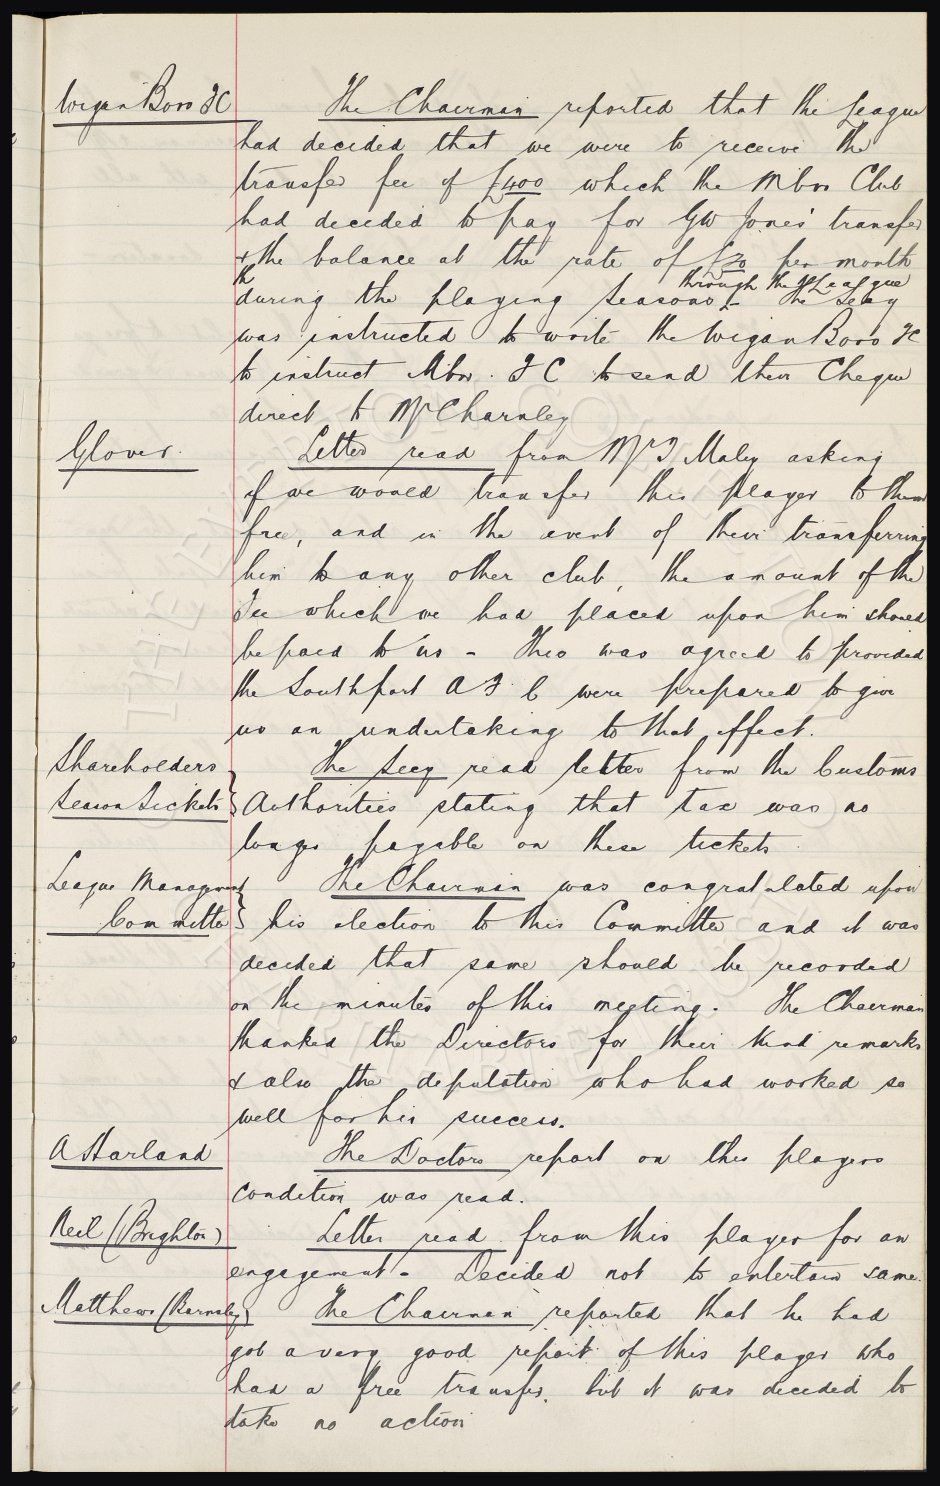 Wigan Boro FC
The Chairman reported that the League
had decided that we were to receive the
transfer fee of £400 which the Mbro Club
had decided to pay for GW Jones' transfer
& the balance at the rate of £20 per month
through the League
during the playing Seasons. - The Secy
was instructed to write the Wigan Boro FC
to instruct Mbro. F C to send their Cheque
direct to Mr Charnley
Glover.
Letter read from Mr F Maley asking
if we would transfer this player to them
free, and in the event of their transferring
him to any other club, the amount of the
Fee which we had placed upon him should
be paid to us - This was agreed to provided
the Southport A F. C were prepared to give
us an undertaking to that effect.
Shareholders
Season Tickets
The Secy read letter from the Customs
Authorities stating that tax was no
longer payable on these tickets
League Management
Committee
The Chairman was congratulated upon
his election to this Committee and it was
decided that same should be recorded
on the minutes of this meeting. The Chairman
thanked the Directors for their kind remarks
& also the deputation who had worked so
well for his success.
A Harland
The Doctors report on this players
condition was read.
Neil (Brighton)
Letter read from this player for an
engagement - Decided not to entertain same.
Matthews (Barnsley)
The Chairman reported that he had
got a very good report of this player who
had a free transfer, but it was decided to
take no action